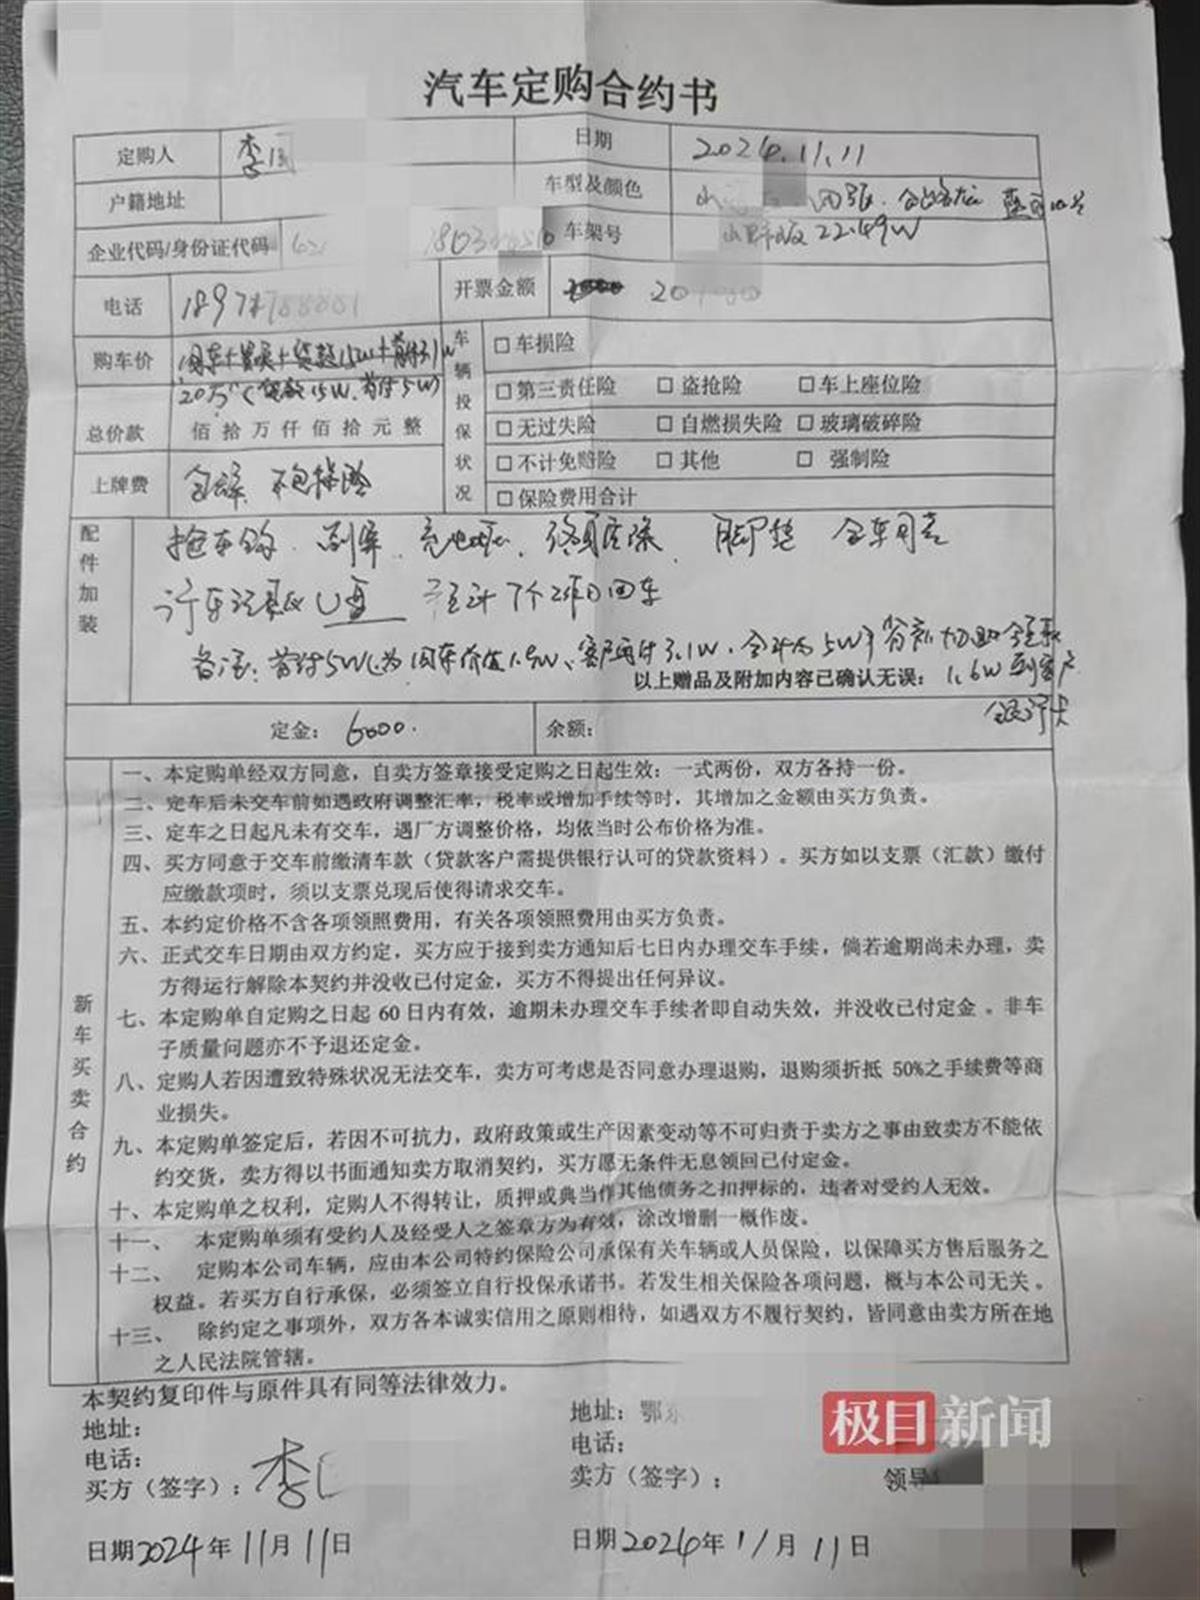 汽车定购合约书
定购人 李 日期 2024.11.11
户籍地址 车型及颜色
企业代码/身份证代码 车架号 22.49W
电话 开票金额
购车价
20万(贷款15W、首付5W)
总价款 佰拾万仟佰拾元整
上牌费 不包保险
车辆投保状况
□车损险
□第三责任险 □盗抢险 □车上座位险
□无过失险 □自燃损失险 □玻璃破碎险
□不计免赔险 □其他 □强制险
□保险费用合计
配件加装
副屏、 脚垫
行车记录仪U盘
备注:首付5W(为旧车价值1.9W、客户再付3.1W、合计为5W)
以上赠品及附加内容已确认无误: 1.6W到客户
银行卡
定金: 6000. 余额:
新车买卖合约
一、本定购单经双方同意，自卖方签章接受定购之日起生效：一式两份，双方各持一份。
二、定车后未交车前如遇政府调整汇率，税率或增加手续等时，其增加之金额由买方负责。
三、定车之日起凡未有交车，遇厂方调整价格，均依当时公布价格为准。
四、买方同意于交车前缴清车款（贷款客户需提供银行认可的贷款资料）。买方如以支票（汇款）缴付
应缴款项时，须以支票兑现后使得请求交车。
五、本约定价格不含各项领照费用，有关各项领照费用由买方负责。
六、正式交车日期由双方约定，买方应于接到卖方通知后七日内办理交车手续，倘若逾期尚未办理，卖
方得运行解除本契约并没收已付定金，买方不得提出任何异议。
七、本定购单自定购之日起 60 日内有效，逾期未办理交车手续者即自动失效，并没收已付定金 。非车
子质量问题亦不予退还定金。
八、定购人若因遭致特殊状况无法交车，卖方可考虑是否同意办理退购，退购须折抵 50%之手续费等商
业损失。
九、本定购单签定后，若因不可抗力，政府政策或生产因素变动等不可归责于卖方之事由致卖方不能依
约交货，卖方得以书面通知卖方取消契约，买方愿无条件无息领回已付定金。
十、本定购单之权利，定购人不得转让，质押或典当作其他债务之扣押标的，违者对受约人无效。
十一、 本定购单须有受约人及经受人之签章方为有效，涂改增删一概作废。
十二、 定购本公司车辆，应由本公司特约保险公司承保有关车辆或人员保险，以保障买方售后服务之
权益。若买方自行承保，必须签立自行投保承诺书。若发生相关保险各项问题，概与本公司无关 。
十三、 除约定之事项外，双方各本诚实信用之原则相待，如遇双方不履行契约，皆同意由卖方所在地
之人民法院管辖。
本契约复印件与原件具有同等法律效力。
地址: 地址: 鄂东
电话: 电话:
买方（签字）: 李 卖方（签字）: 领导
日期2024年11月11日 日期2024年11月11日
极目新闻